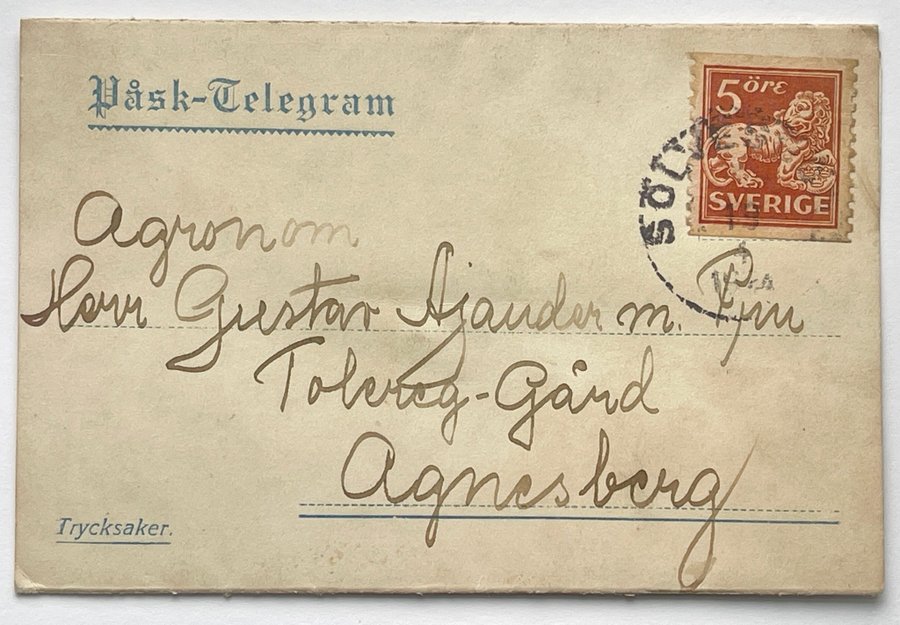 Påsk-Telegram
5 ÖRE
SVERIGE
SÖLVESB
15
Agronom
Herr Gustav Ajander m. Fru
Tolereg-Gård
Agnesberg
Trycksaker.